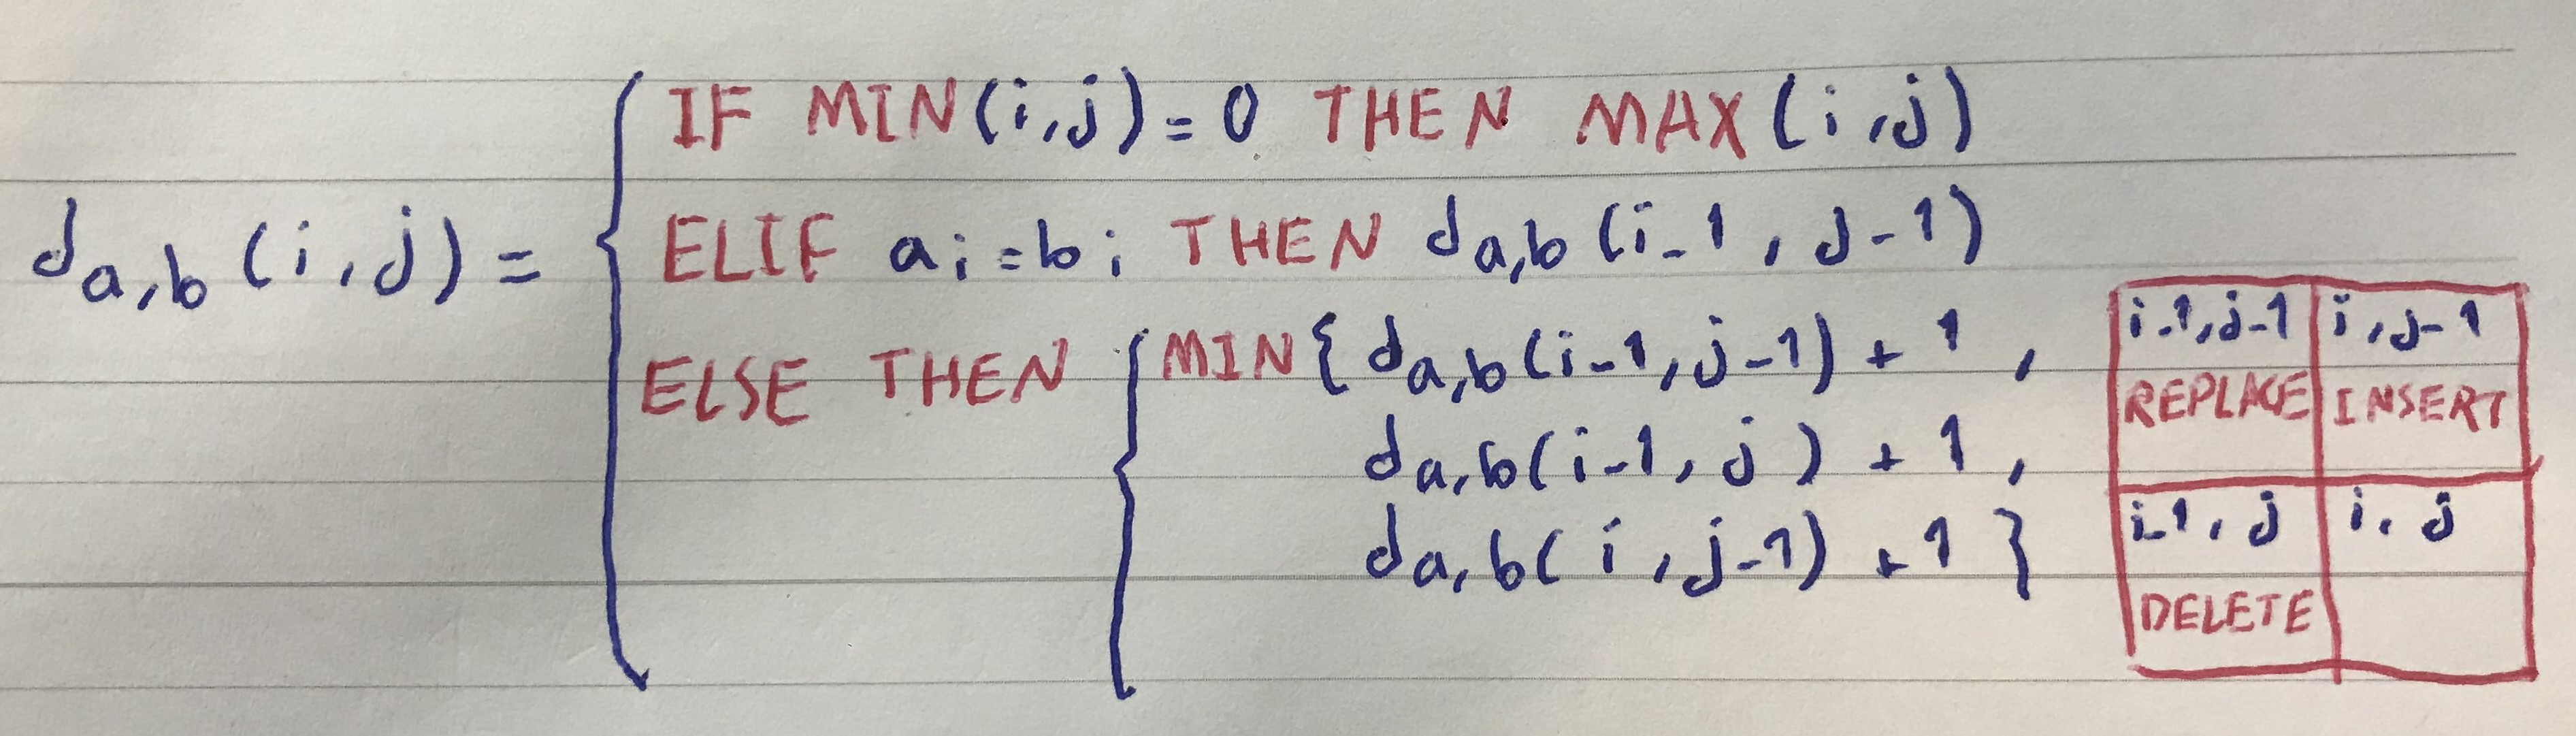 IF MIN(i,j)=0 THEN MAX(i,j)
d a,b (i,j) =
ELIF a i = b i THEN d a,b (i-1, j-1)
ELSE THEN MIN{ d a,b (i-1, j-1) + 1 ,
d a,b (i-1, j) + 1 ,
d a,b (i, j-1) + 1 }
i-1, j-1 i, j-1
REPLACE INSERT
i-1, j i, j
DELETE